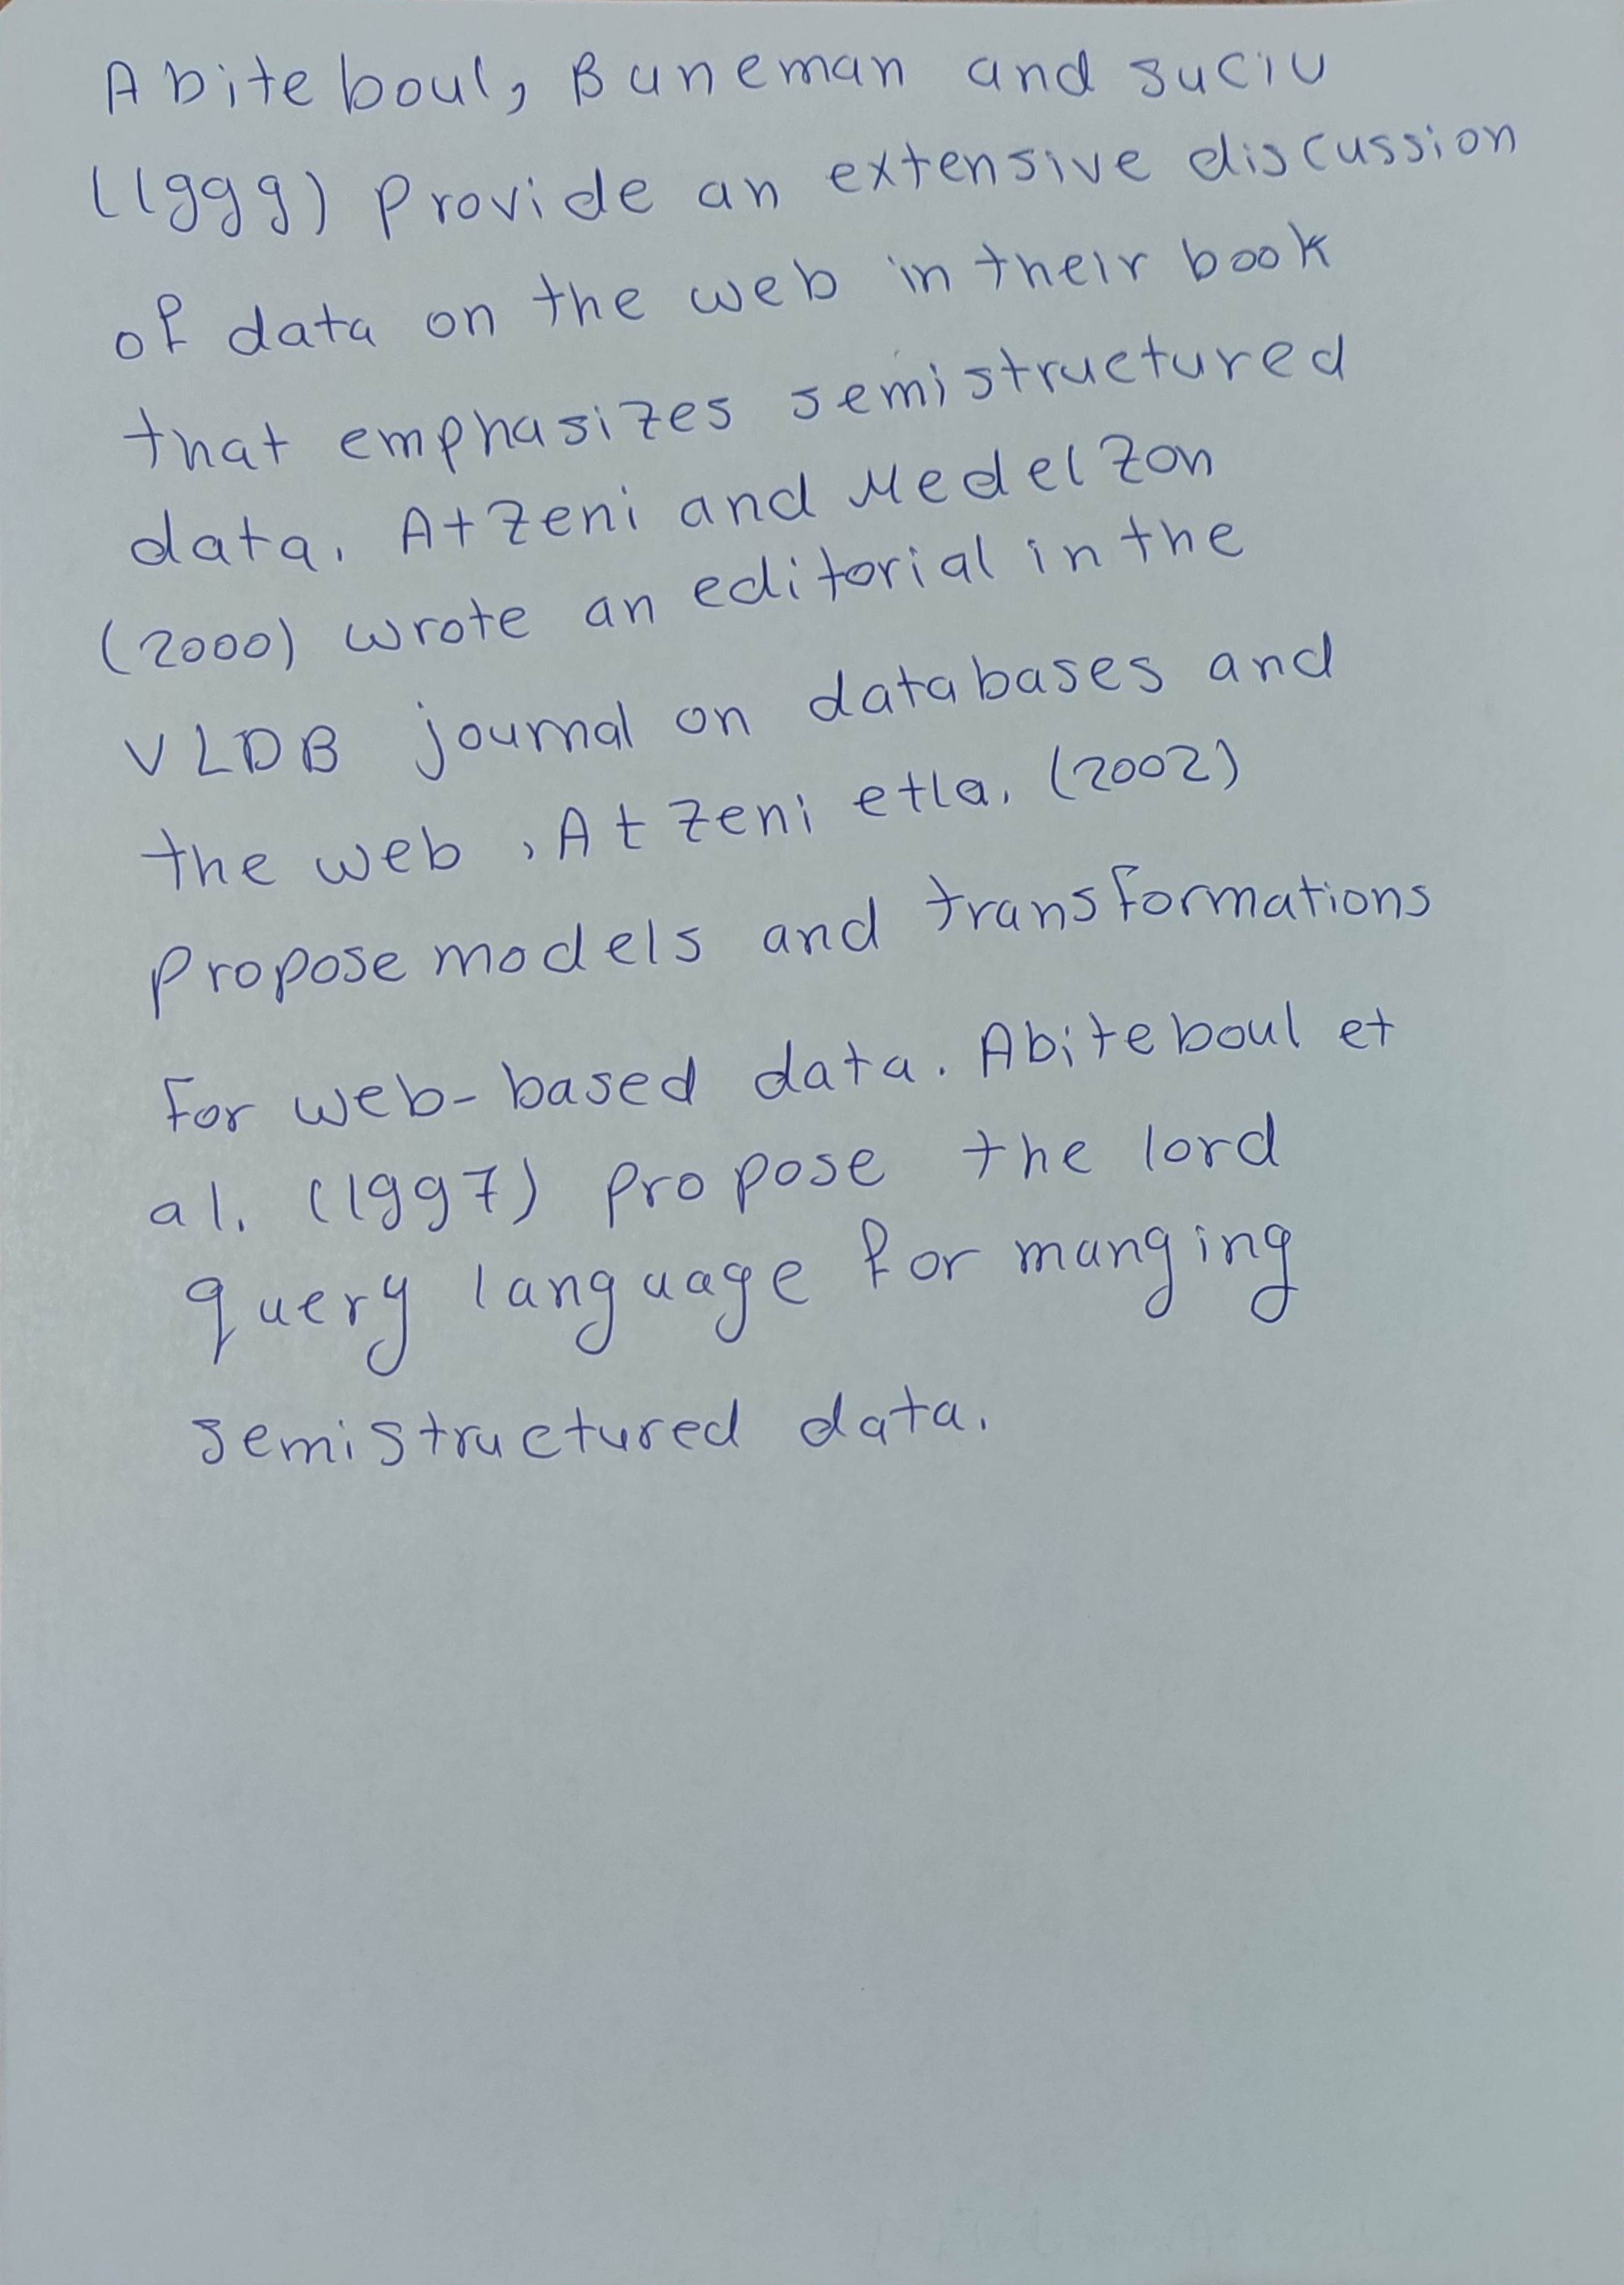 Abiteboul, Buneman and suciu
(1999) Provide an extensive discussion
of data on the web in their book
that emphasizes semistructured
data. Atzeni and Medelzon
(2000) wrote an editorial in the
VLDB journal on databases and
the web, Atzeni etla. (2002)
propose models and transformations
For web-based data. Abiteboul et
al. (1997) propose the lord
query language for manging
semistructured data.